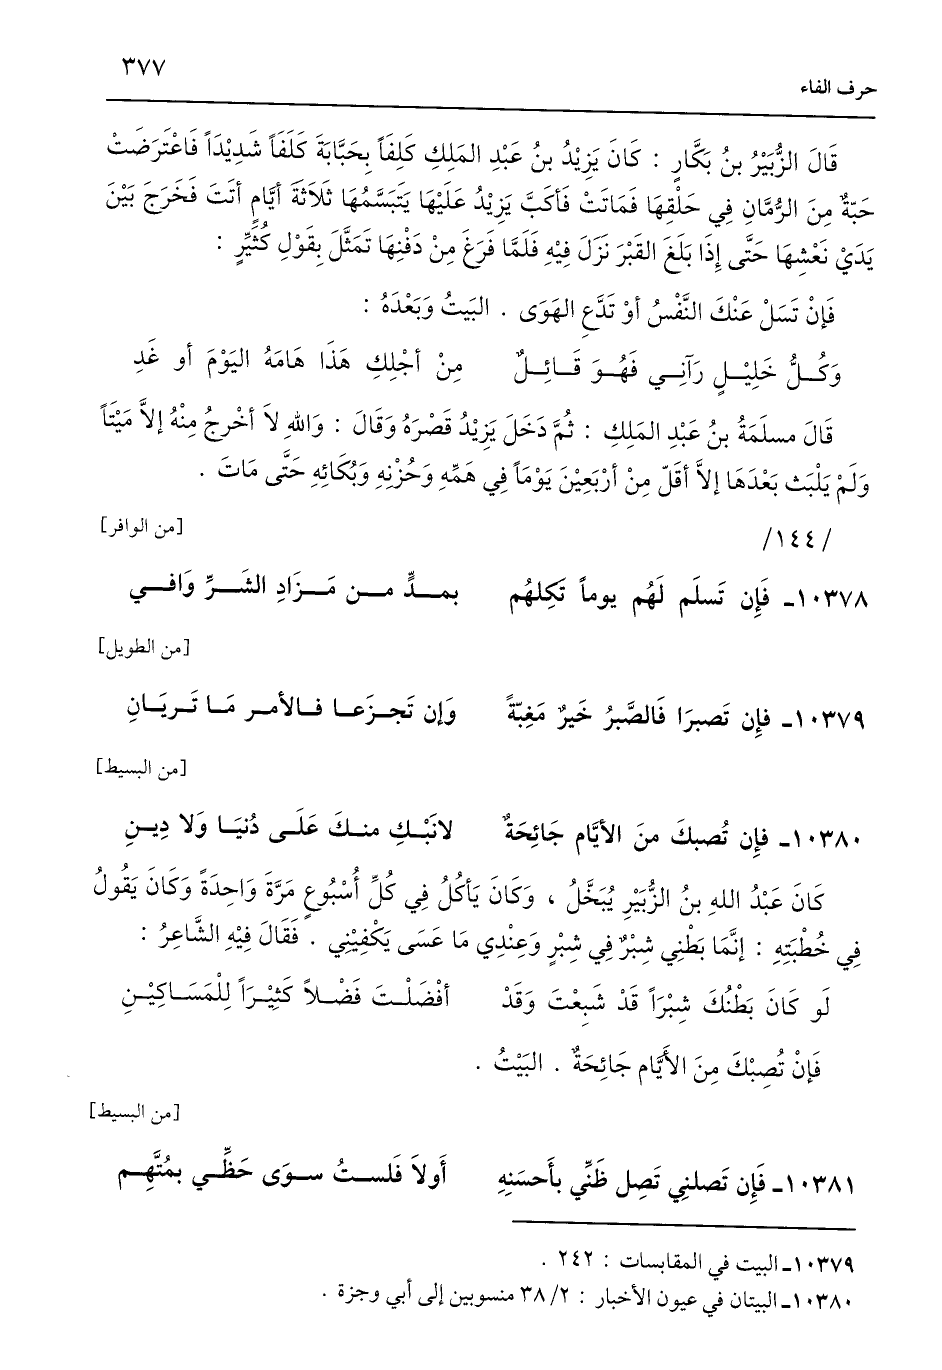 حرف الفاء ٣٧٧
قَالَ الزُّبَيْرُ بنُ بَكَّارٍ : كَانَ يَزِيْدُ بنُ عَبْدِ المَلِكِ كَلِفَاً بِحَبَّابَةَ كَلَفَاً شَدِيْدَاً فَاعْتَرَضَتْ
حَبّةٌ مِنَ الرُّمَّانِ فِي حَلْقِهَا فَمَاتَتْ فَأكَبَّ يَزِيْدُ عَلَيْهَا يَتَبَسَّمُهَا ثَلاَثَةَ أيَّامٍ أتَتْ فَخَرَجَ بَيْنَ
يَدَيْ نَعْشِهَا حَتَّى إِذَا بَلَغَ القَبْرَ نَزَلَ فِيْهِ فَلَمَّا فَرَغَ مِنْ دَفْنِهَا تَمَثَّلَ بِقَوْلِ كُثَيِّرٍ :
فَإِنْ تَسَلْ عَنْكَ النَّفْسُ أوْ تَدَّعِ الهَوَى . البَيتُ وَبَعْدَهُ :
وَكُلُّ خَلِيْلٍ رَآنِي فَهُوَ قَائِلٌ مِنْ أجْلِكِ هَذَا هَامَةُ اليَوْمَ أو غَدِ
قَالَ مسلَمَةُ بنُ عَبْدِ المَلِكِ : ثُمَّ دَخَلَ يَزِيْدُ قَصْرَهُ وَقَالَ : وَاللهِ لاَ أخْرجُ مِنْهُ إلاَّ مَيْتَاً
وَلَمْ يَلْبَث بَعْدَهَا إلاَّ أقَلّ مِنْ أرْبَعِيْنَ يَوْمَاً فِي هَمِّهِ وَحُزْنِهِ وَبُكَائِهِ حَتَّى مَاتَ .
[من الوافر]
/١٤٤/
١٠٣٧٨ـ فَإِن تَسلَم لَهُم يوماً تَكِلهُم بمدٍّ من مَزَادِ الشَرِّ وَافي
[من الطويل]
١٠٣٧٩ـ فإِن تَصبرَا فَالصَّبرُ خَيرٌ مَغِبّةً وَإن تَجزَعا فالأمر مَا تَريَانِ
[من البسيط]
١٠٣٨٠ـ فإِن تُصبكَ منَ الأيَّام جَائِحَةٌ لانَبْكِ منكَ عَلَى دُنيَا وَلا دِينِ
كَانَ عَبْدُ اللهِ بنُ الزُّبَيْرِ يُبَخَّلُ ، وَكَانَ يَأكُلُ فِي كُلِّ أُسْبُوعٍ مَرَّةَ وَاحِدَةً وَكَانَ يَقُولُ
فِي خُطْبَتِهِ : إنَّمَا بَطْنِي شِبْرٌ فِي شِبْرٍ وَعِنْدِي مَا عَسَى يَكْفِيْنِي . فَقَالَ فِيْهِ الشَّاعِرُ :
لَو كَانَ بَطْنُكَ شِبْرَاً قَدْ شَبِعْتَ وَقَدْ أفْضَلْتَ فَضْلاً كَثِيْرَاً لِلْمَسَاكِيْنِ
فَإنْ تُصِبْكَ مِنَ الأَيَّام جَائِحَةٌ . البَيْتُ .
[من البسيط]
١٠٣٨١ـ فَإِن تَصلنِي تَصِل ظَنِّي بأَحسَنِهِ أَولاَ فَلستُ سوَى حَظِّي بمُتَّهِم
١٠٣٧٩ـ البيت في المقابسات : ٢٤٢ .
١٠٣٨٠ـ البيتان في عيون الأخبار : ٣٨/٢ منسوبين إلى أبي وجزة .